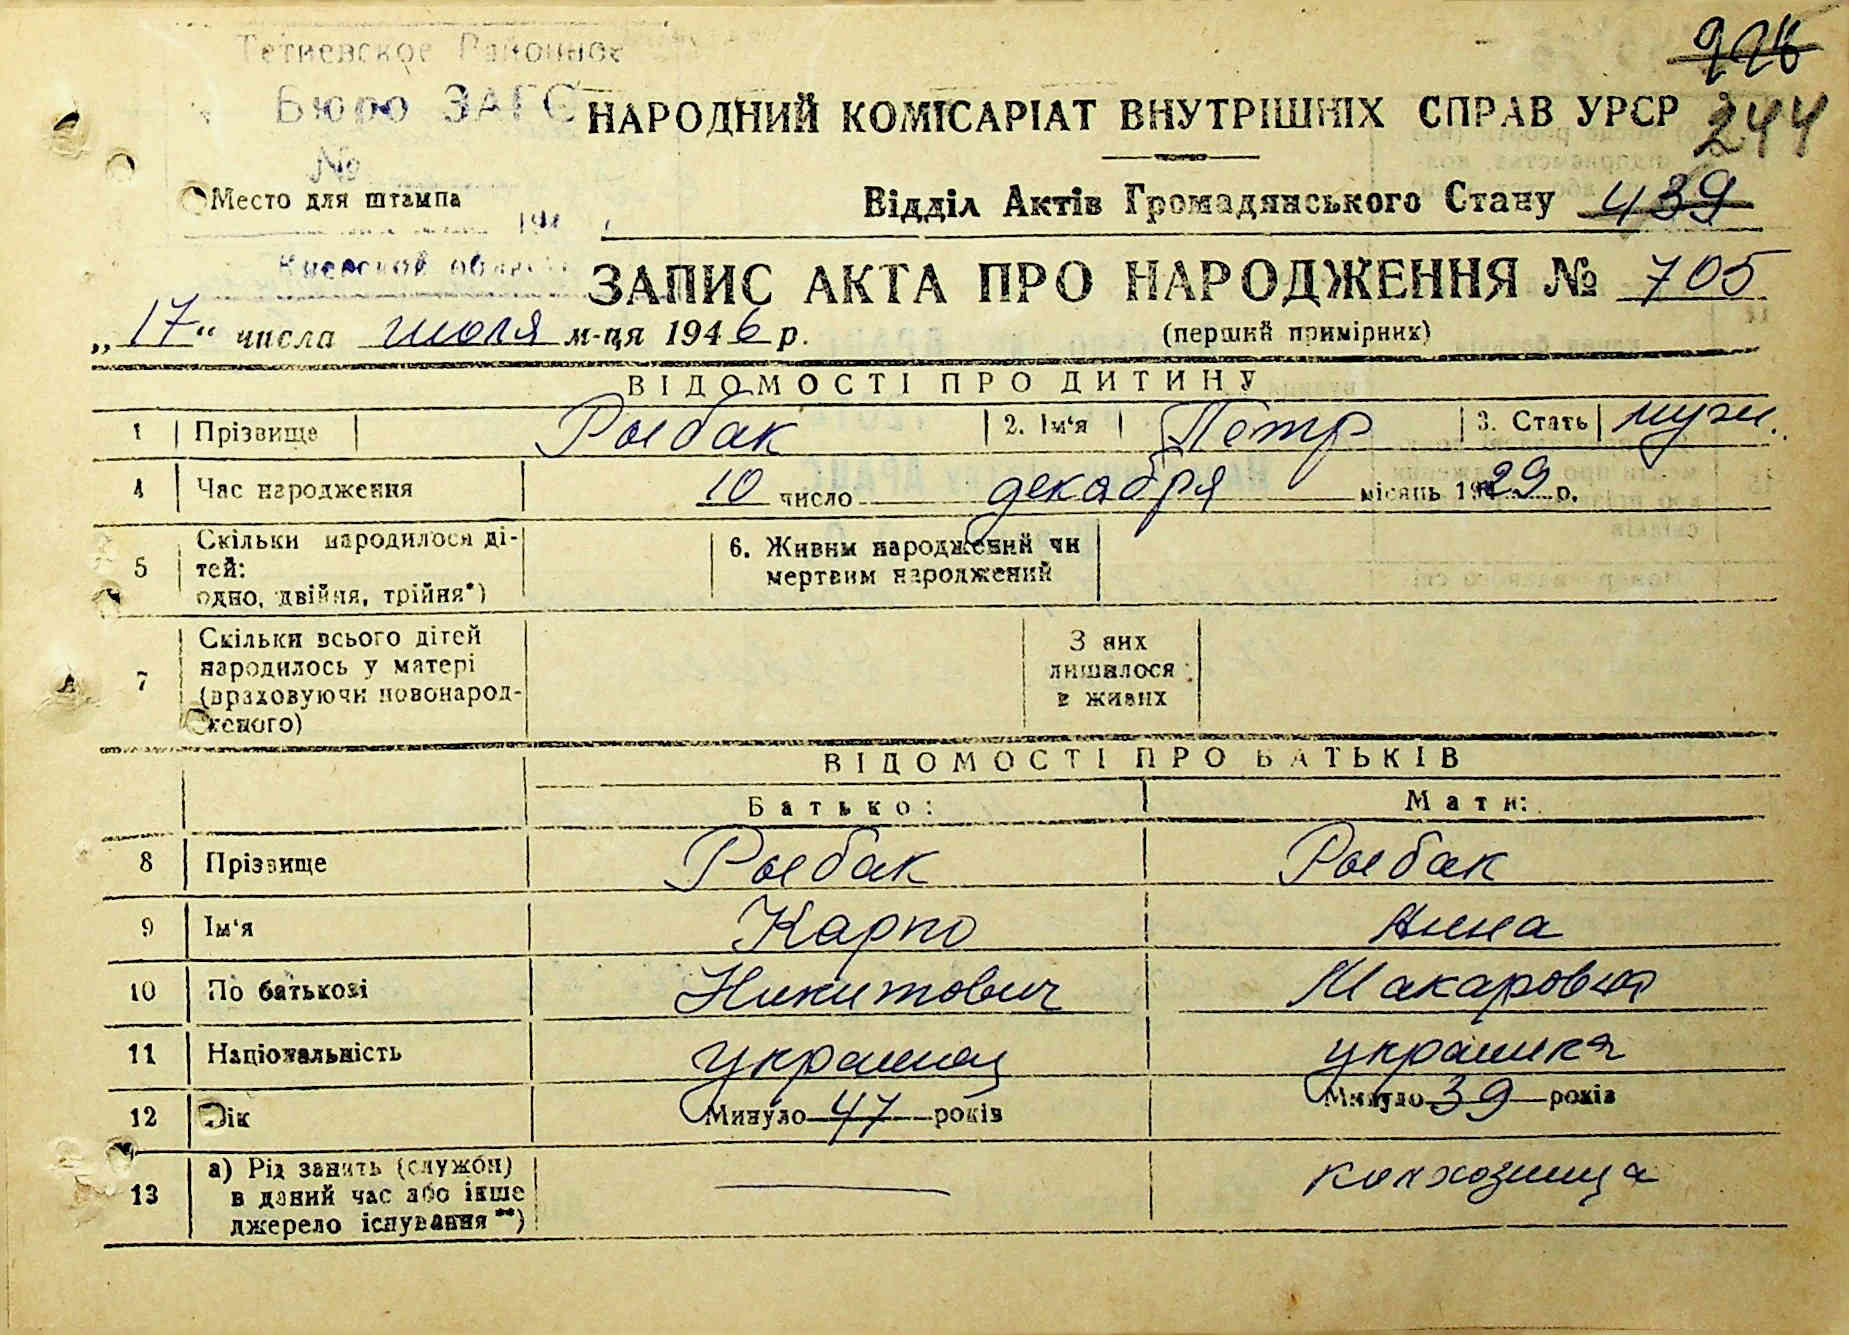 226
Тетиевское Районное
Бюро ЗАГС
НАРОДНИЙ КОМІСАРІАТ ВНУТРІШНІХ СПРАВ УРСР
244
№
Место для штампа
Відділ Актів Громадянського Стану 439
Киевской области
ЗАПИС АКТА ПРО НАРОДЖЕННЯ № 705
„17“ числа июля м-ця 1946 р. (перший примірник)
ВІДОМОСТІ ПРО ДИТИНУ
1 Прізвище Рыбак 2. Ім'я Петр 3. Стать муж.
4 Час народження 10 число декабря місяць 1929 р.
5 Скільки народилося ді-
тей:
одно, двійня, трійня*)
6. Живим народжений чи
мертвим народжений
7 Скільки всього дітей
народилось у матері
(враховуючи новонарод-
женого)
З них
лишилося
в живих
ВІДОМОСТІ ПРО БАТЬКІВ
Батько: Мати:
8 Прізвище Рыбак Рыбак
9 Ім'я Карпо Анна
10 По батькові Никитович Макаровна
11 Національність украинец украинка
12 Вік Минуло 47 років Минуло 39 років
13 а) Рід занять (служби)
в даний час або інше
джерело існування**)
— колхозница